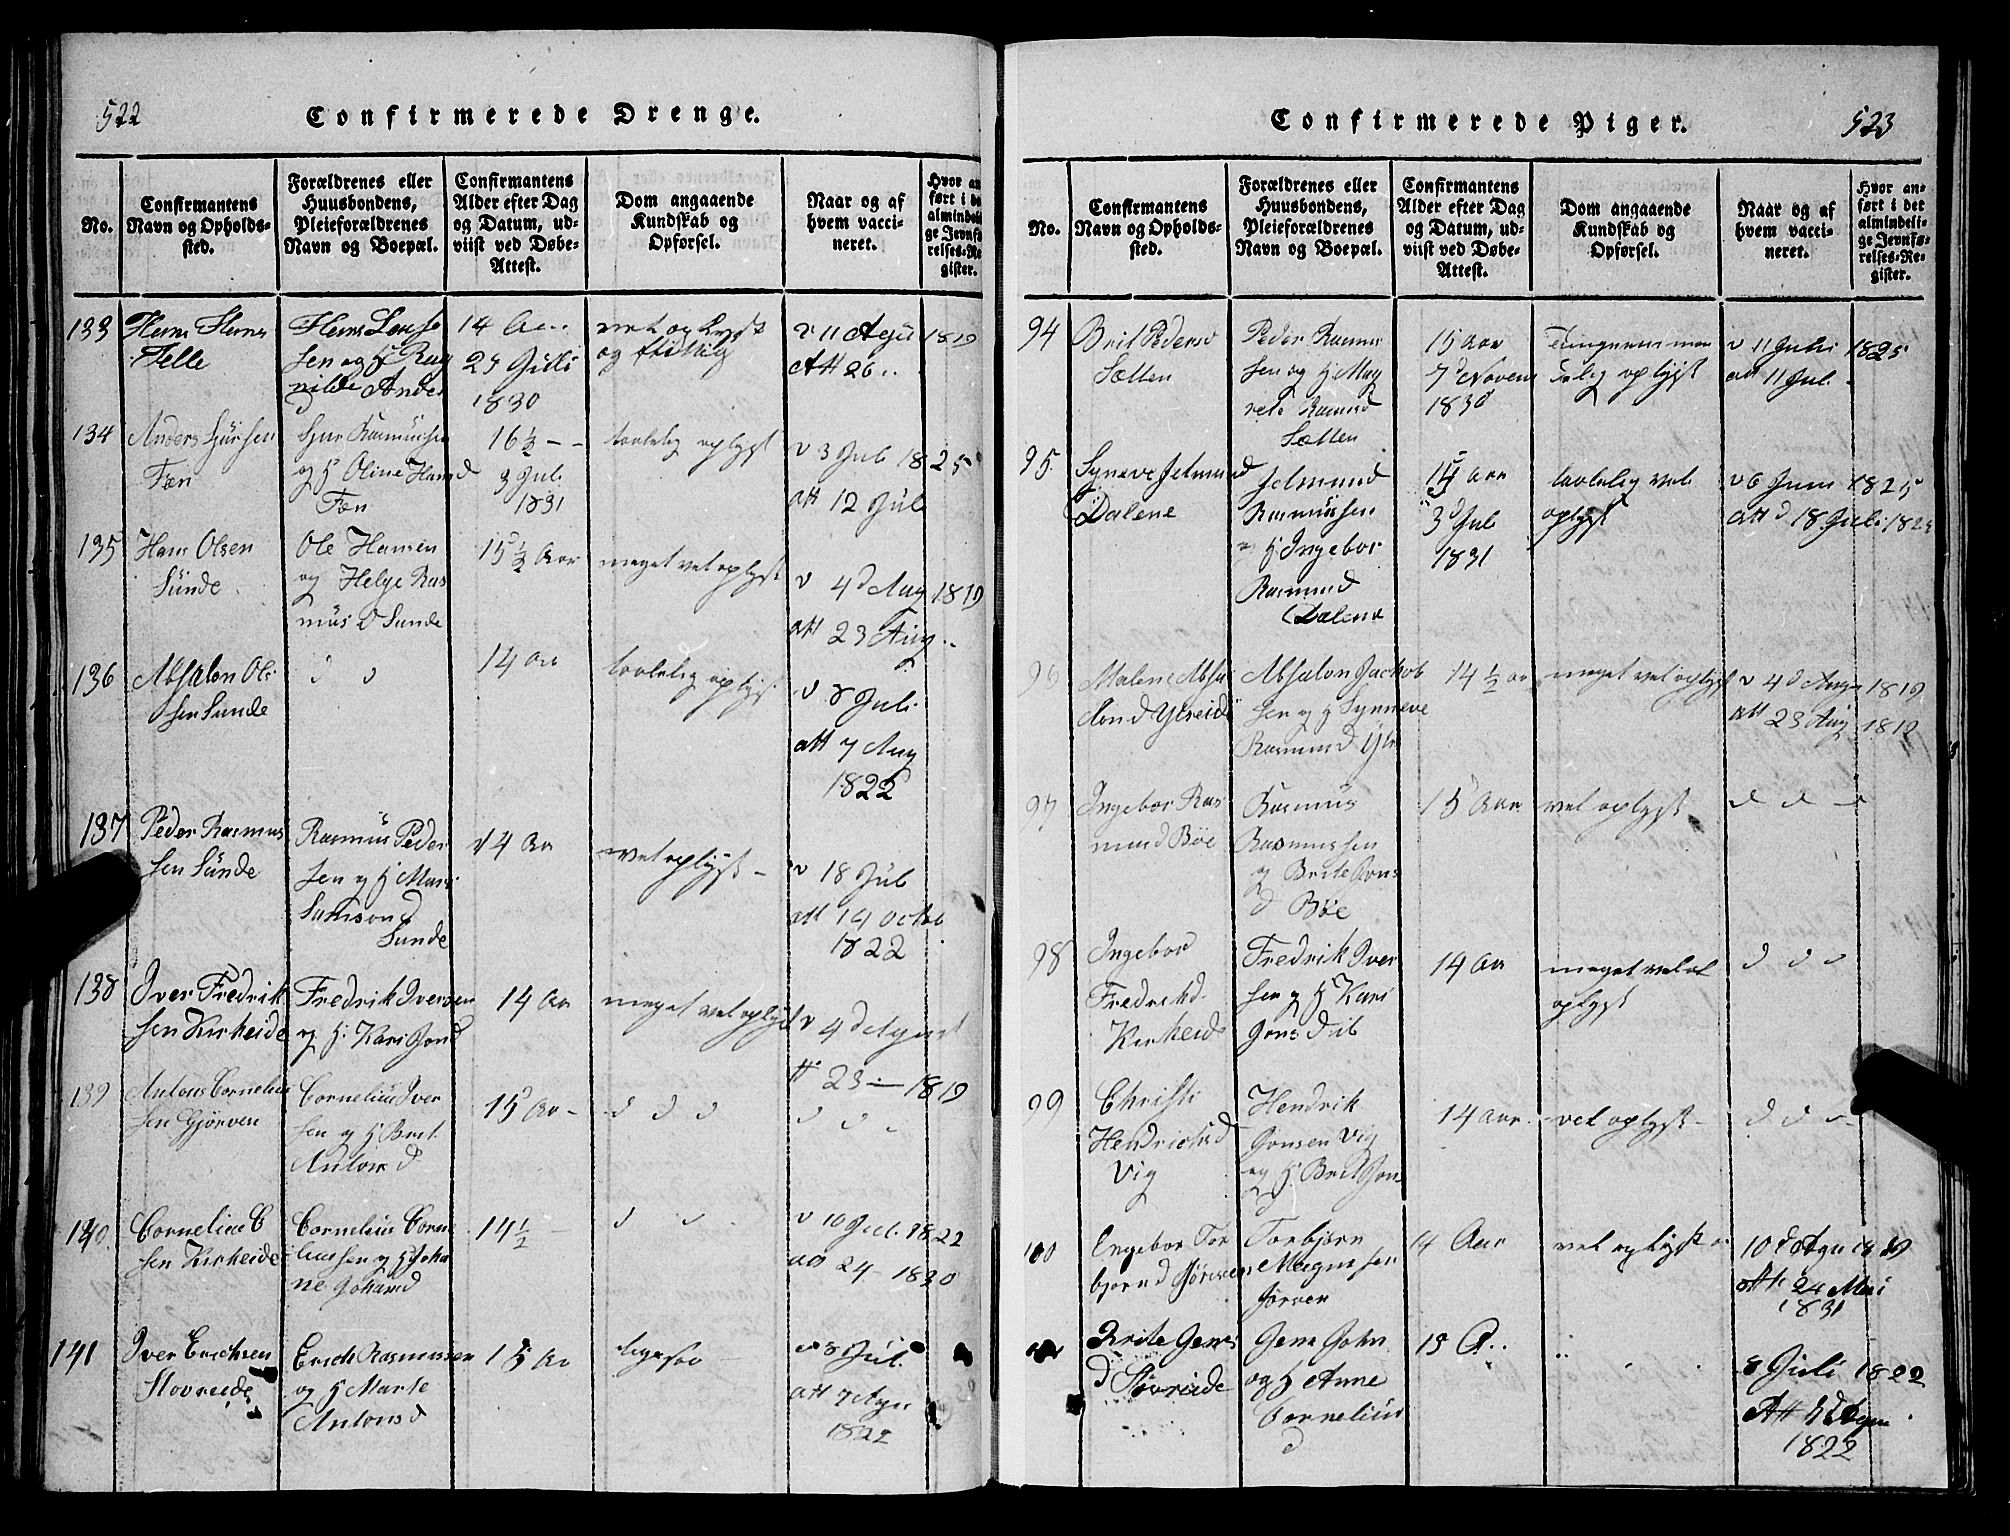 522
Confirmerede Drenge.
No.
Confirmantens
Navn og Opholds-
sted.
Forældrenes eller
Huusbondens,
Pleieforældrenes
Navn og Boepæl.
Confirmantens
Alder efter Dag
og Datum, ud-
viist ved Døbe-
Attest.
Dom angaaende
Kundskab og
Opførsel.
Naar og af
hvem vacci-
neret.
Hvor an
ført i de
almindeli
ge Jevnfø
relses-Re
gister.
133
Helle
sen og H Rag
nilde Ander
d
14
25
1830
og flittig
v 11 Agu 1819
Att 26
134
Anders Sjursen
Føn
Sjur Rasmussen
og H Oline Hans d
Føn
16 1/2 - -
3 Juli
1831
taalelig oplyst
v 3 Juli 1825
att 12 Jul
135
Hans Olsen
Sunde
Ole Hansen
og Helge Ras
mus D Sunde
15 1/2 Aar
meget vel oplyst
v 4 d Aug 1819
att 23 Aug
136
Absalon Ol
sen Sunde
d d
14 Aar
taalelig oplyst
v 8 Juli
att 7 Aug
1822
137
Peder Rasmus
sen Sunde
Rasmus Peder
sen og H Mari
Samson d
Sunde
14 Aar
vel oplyst -
v 18 Jul
att 14 Octob
1822
138
Iver Fredrik
sen Kirheide
Fredrik Iversen
og H: Kari Jon d
14 Aar
meget vel oplyst
v 4 d Agust
23 - 1819
139
Antons Cornelius
sen Gjørven
Cornelius Iver
sen og H Brit
Antons d
15 Aar -
d d d
140
Cornelius C
sen Kirheide
Cornelius Corne
liussen og H Joha
ne Johan d
14 1/2
d d
v 10 Juli 1822
24 - 1830
141
Iver Erichsen
Hovreide
Erich Rasmussen
og H Marte
Antons d
15 Aar
ligesaa
8 Jul
att 7 Agu
1822
Confirmerede Piger.
523
No.
Confirmantens
Navn og Opholds-
sted.
Forældrenes eller
Huusbondens,
Pleieforældrenes
Navn og Boepæl.
Confirmantens
Alder efter Dag
og Datum, ud-
viist ved Døbe-
Attest.
Dom angaaende
Kundskab og
Opførsel.
Naar og af
hvem vacci-
neret.
Hvor an-
ført i det
almindeli-
ge Jevnfø-
relses-Re-
gister.
94
Brit Peders d
Sætten
Peder Rasmus
sen og H Mag
rete Rasmus d
Sætten
15 Aar
7 d Novem
1830
oplyst
v 11 Juli 1825
att 11 Jul
95
Synneve Jelmund d
Dalene
Jelmund
Rasmussen
H Ingebor
Rasmus d
Dalene
15 Aar
3 d Jul
1831
taalelig vel
oplyst
v 6 Juni 1825
att d 18 Juli 1825
96
Malene Absa
lon d
Absalon Jackob
sen og H Synneve
Rasmus d
14 1/2 Aar
meget vel oplyst
v 4 d Aug 1819
att 23 Aug 1819
97
Ingebor Ras
mus d Bøe
Rasmus
Rasmussen
og Brite Jons
d Bøe
15 Aar
vel oplyst
d d d
98
Ingebor
Fredrik d
Kirheide
Fredrik Iver
sen og H Kari
Jons d
14 Aar
meget vel
oplyst
d d d
99
Christi
Hendrichs d
Vig
Hendrik
Jonsen Vig
og H: Brit Jons
d
14 Aar
vel oplyst -
d d d
100
Engebor Tor
bjørn d Jørven
Torbjørn
Magnussen
Jørven
14 Aar
vel oplyst
10 d Agu
Att 24 Mai
1831
Brite Jens
d Hovreide
Jens John
og H Anne
Cornelius
d
15 A..
8 Juli 1822
Att
1822